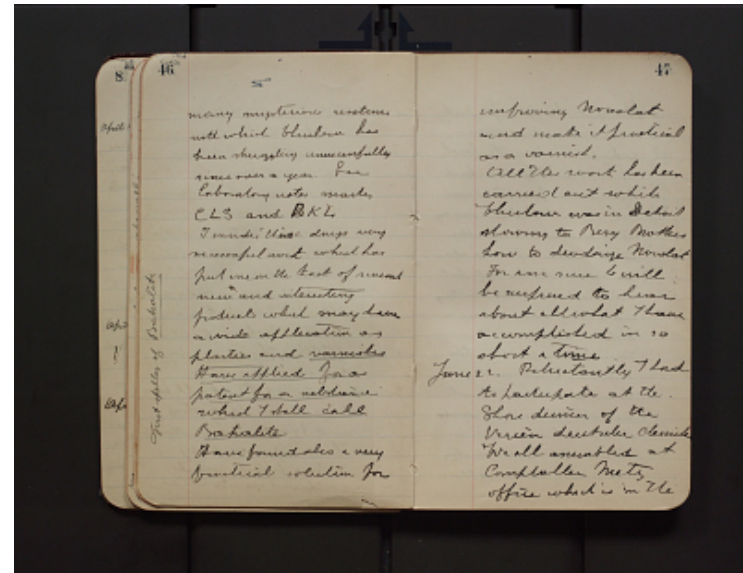 8
April
46
many mysterious
with which Thurlow has
been struggling unsuccessfully
since over a year. See
laboratory notes marks
CLS and BKL
I consider these days very
successful work which has
put me on the track of several
new and interesting
products which may have
a wide application as
plastics and varnishes
Have applied for a
patent for a substance
which I shall call
Bakalite
Have found also a very
practical solution for
First of Bakalite
47
improving Novolak
and make it practical
as a varnish.
All this work has been
carried out while
Thurlow was in Detroit
showing to Berry Brothers
how to Novolak
For am sure he will
be surprised to hear
about all what I have
accomplished in so
short a time
June 22. Reluctantly I had
to participate at the
Shore dinner of the
Verein deutscher Chemiker
We all assembled at
Comptroller Metz
office which is in the